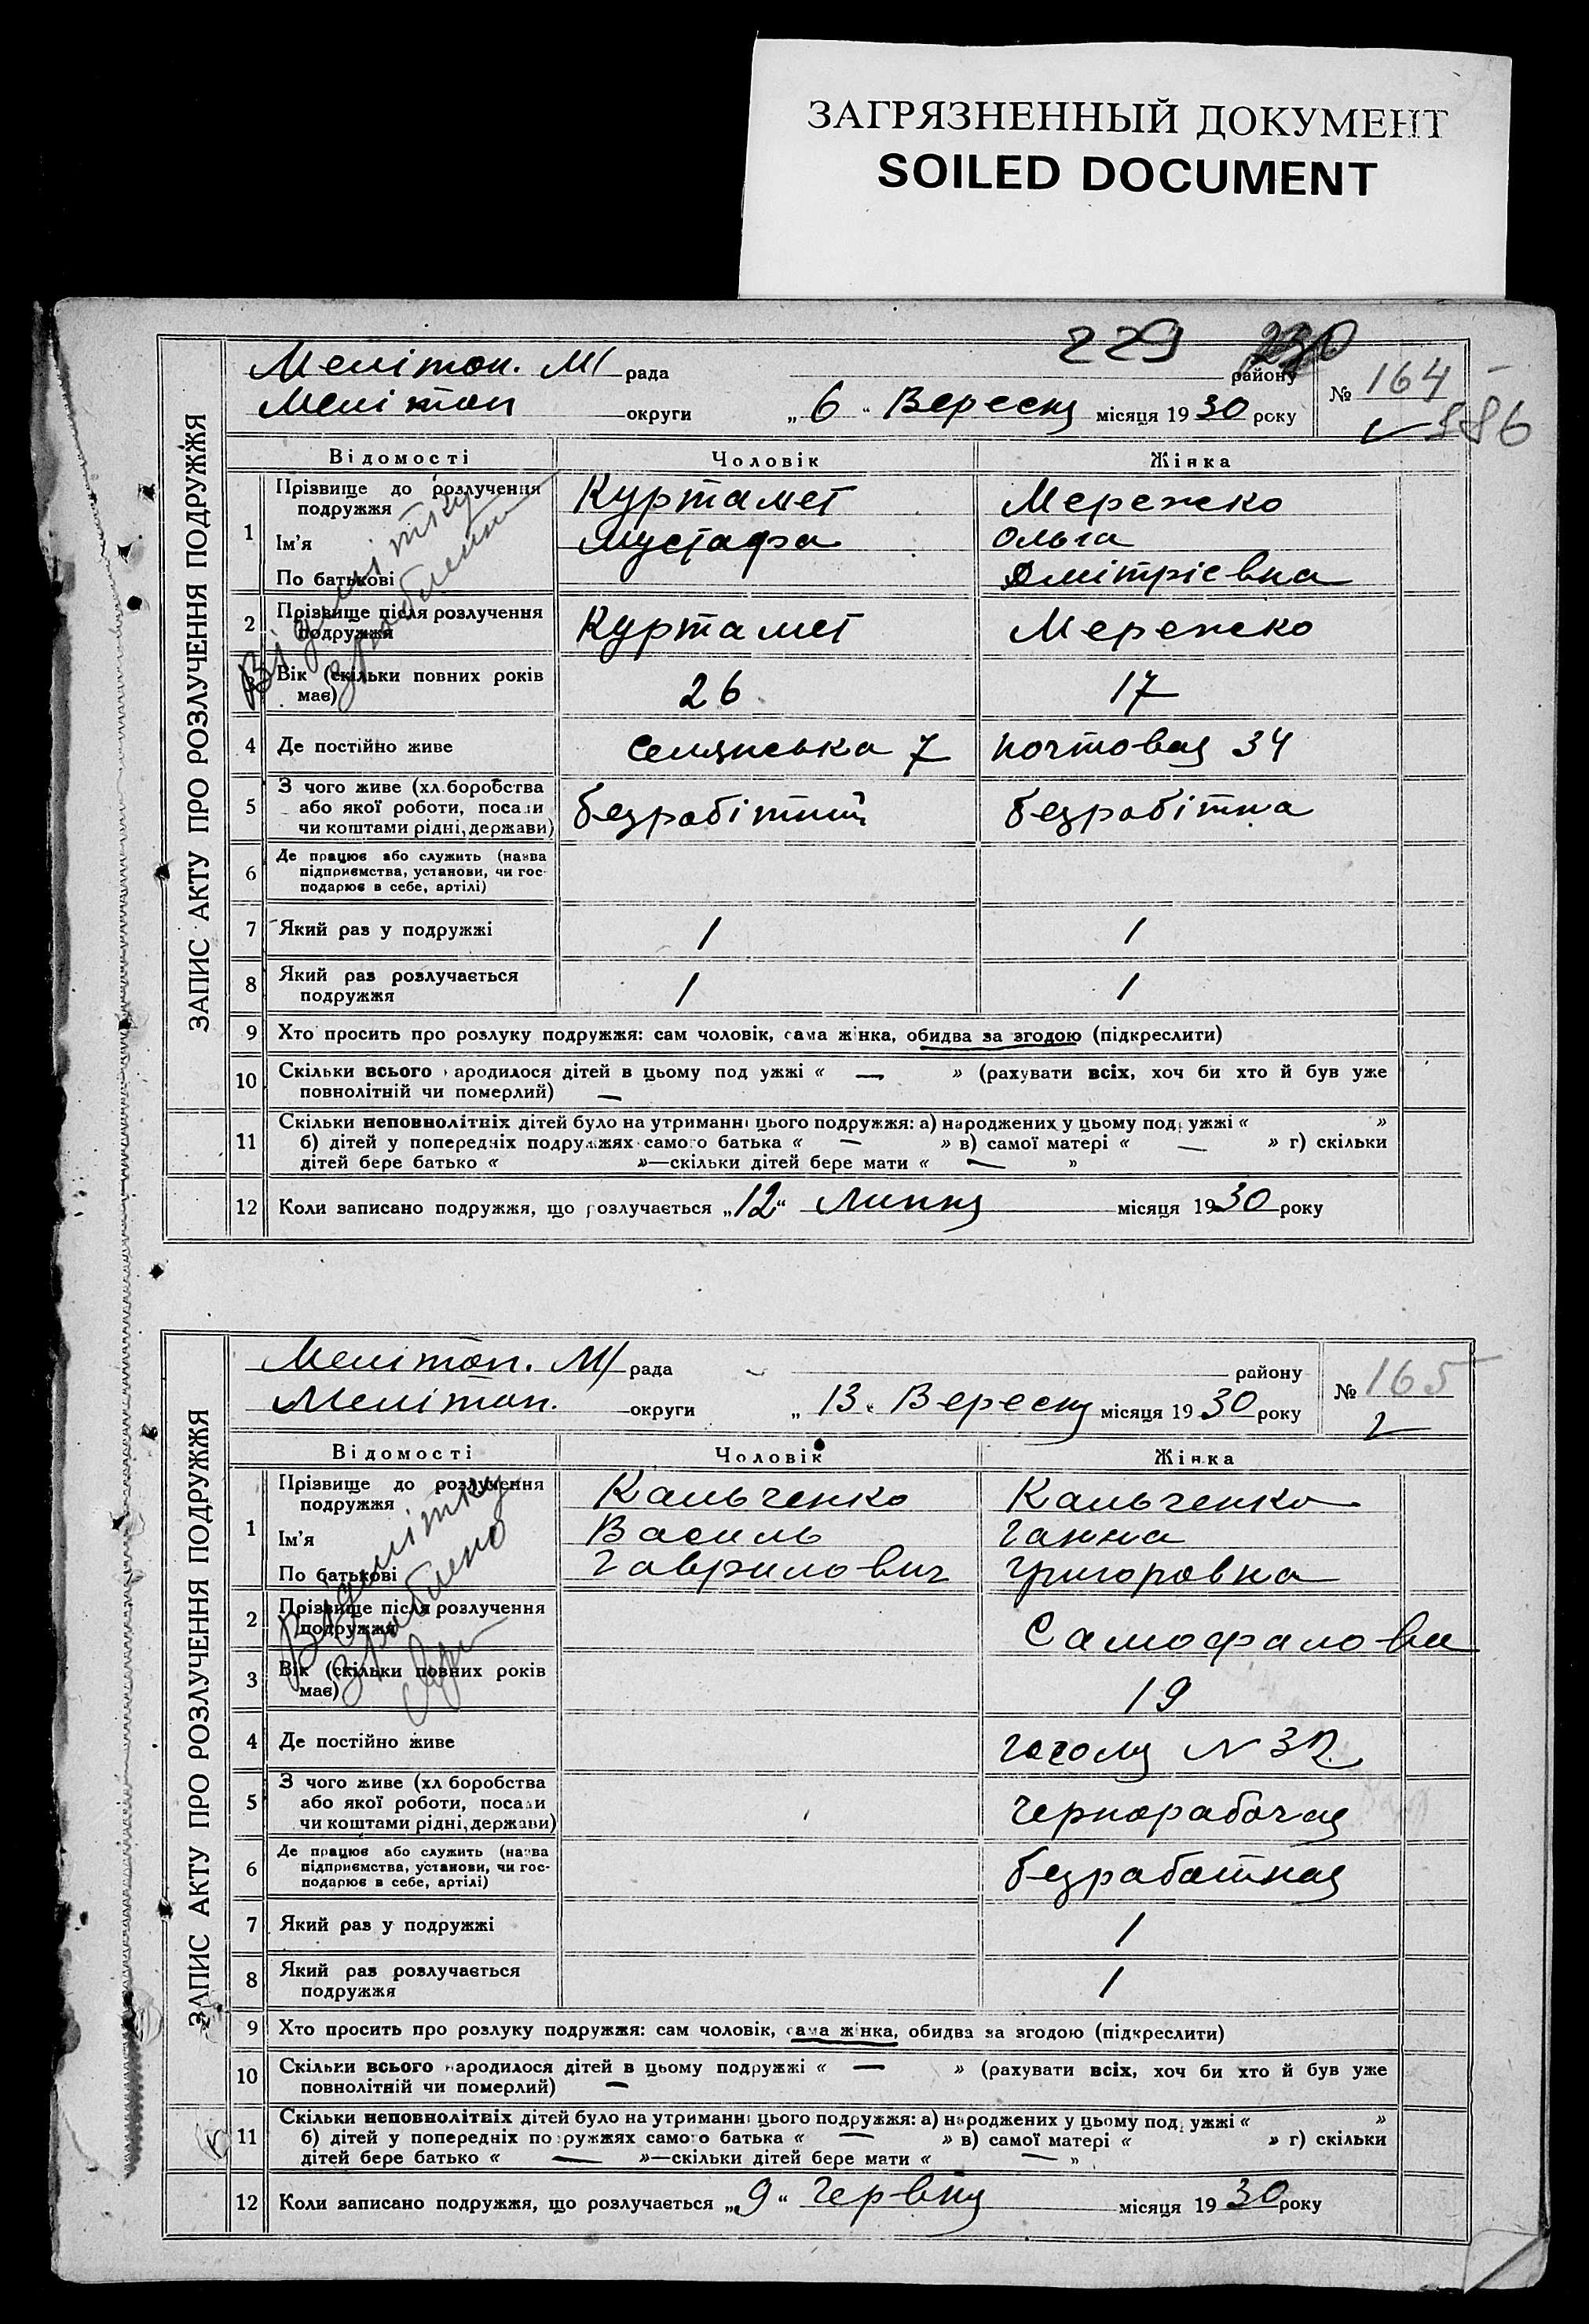 ЗАГРЯЗНЕННЫЙ ДОКУМЕНТ
SOILED DOCUMENT
229 230
ЗАПИС АКТУ ПРО РОЗЛУЧЕННЯ ПОДРУЖЖЯ
Мелітоп. М/рада района № 164
Мелітоп округи „6“ Вересня місяця 1930 року
886
Відомості Чоловік Жінка
1 Прізвище до розлучення подружжя Куртамет Мережко
Ім'я Мустафа Ольга
По батькові Дмітрієвна
2 Прізвище після розлучення подружжя Куртамет Мережко
3 Вік (скільки повних років має) 26 17
4 Де постійно живе Селянська 7 почтовая 34
5 З чого живе (хл.боробства
або якої роботи, посади
чи коштами рідні, держави) безробітний безробітна
6 Де працює або служить (назва
підприємства, установи, чи гос-
подарює в себе, артілі)
7 Який раз у подружжі 1 1
8 Який раз розлучається подружжя 1 1
Відмітку зроблено
9 Хто просить про розлуку подружжя: сам чоловік, сама жінка, обидва за згодою (підкреслити)
10 Скільки всього народилося дітей в цьому подружжі « — » (рахувати всіх, хоч би хто й був уже
повнолітній чи померлий) —
11 Скільки неповнолітніх дітей було на утриманні цього подружжя: а) народжених у цьому подружжі « »
б) дітей у попередніх подружжях самого батька « — » в) самої матері « — » г) скільки
дітей бере батько « »—скільки дітей бере мати « — »
12 Коли записано подружжя, що розлучається „12“ Липня місяця 1930 року
ЗАПИС АКТУ ПРО РОЗЛУЧЕННЯ ПОДРУЖЖЯ
Мелітоп. М/рада району № 165
Мелітоп. округи „13“ Вересня місяця 1930 року
Відомості Чоловік Жінка
1 Прізвище до розлучення подружжя Кальченко Кальченко
Ім'я Василь Ганна
По батькові Гаврилович Григоровна
2 Прізвище після розлучення подружжя Самофалова
3 Вік (скільки повних років має) 19
4 Де постійно живе Гоголя N 32
5 З чого живе (хл боробства
або якої роботи, посади
чи коштами рідні, держави) чернорабочая
6 Де працює або служить (назва
підприємства, установи, чи гос-
подарює в себе, артілі) безработная
7 Який раз у подружжі 1
8 Який раз розлучається подружжя 1
Відмітку зроблено
9 Хто просить про розлуку подружжя: сам чоловік, сама жінка, обидва за згодою (підкреслити)
10 Скільки всього народилося дітей в цьому подружжі « — » (рахувати всіх, хоч би хто й був уже
повнолітній чи померлий) —
11 Скільки неповнолітніх дітей було на утриманні цього подружжя: а) народжених у цьому подружжі « »
б) дітей у попередніх подружжях самого батька « — » в) самої матері « » г) скільки
дітей бере батько « — »—скільки дітей бере мати « — »
12 Коли записано подружжя, що розлучається „9“ Червня місяця 1930 року